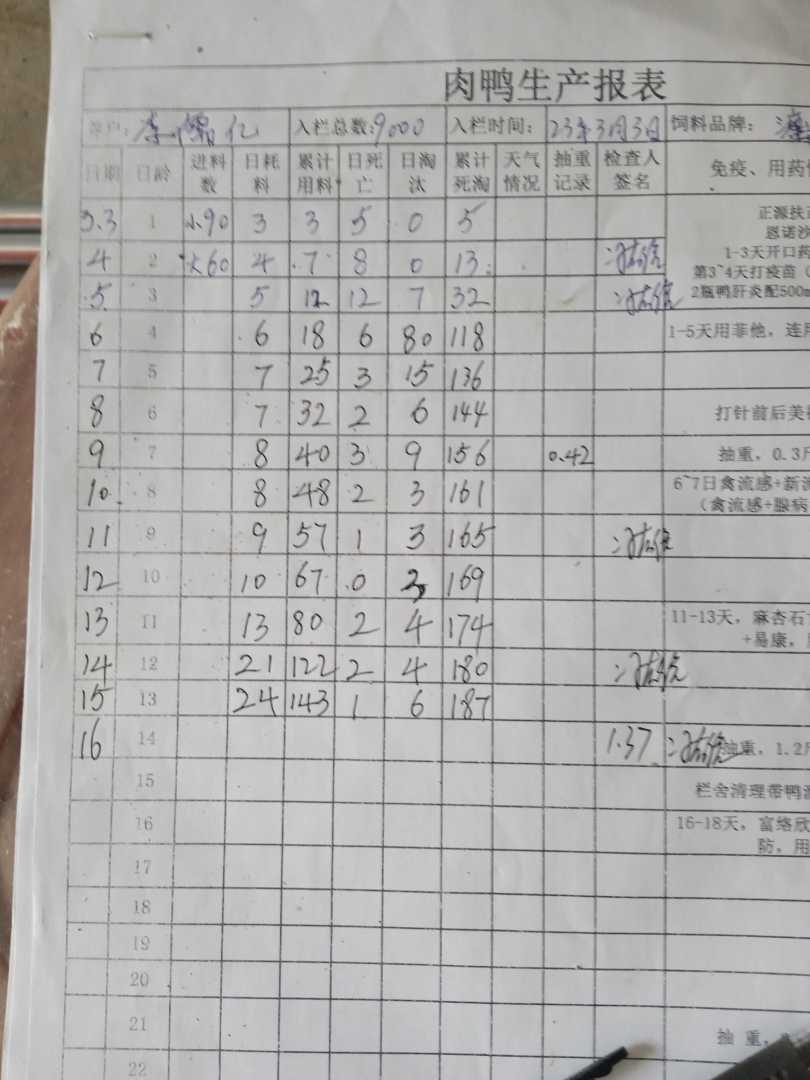 肉鸭生产报表
养户: 李 亿 入栏总数:9000 入栏时间: 23年3月3日 饲料品牌:
日期 日龄 进料数 日耗料 累计用料 日死亡 日淘汰 累计死淘 天气情况 抽重记录 检查人签名 免疫、用药
3.3 1 小90 3 3 5 0 5 正源扶正
恩诺沙
4 2 大60 4 7 8 0 13 1-3天开口药
第3~4天打疫苗(
5 3 5 12 12 7 32 2瓶鸭肝炎配500m
6 4 6 18 6 80 118 1-5天用菲他，连用
7 5 7 25 3 15 136
8 6 7 32 2 6 144 打针前后美
9 7 8 40 3 9 156 0.42 抽重，0.3斤
10 8 8 48 2 3 161 6~7日禽流感+新流
(禽流感+腺病
11 9 9 57 1 3 165
12 10 10 67 0 169
13 11 13 80 2 4 174 11-13天，麻杏石
+易康，
14 12 21 122 2 4 180
15 13 24 143 1 6 187
16 14 1.37 抽重，1.2斤
15 栏舍清理带鸭
16 16-18天，富络欣
防，用
17
18
19
20
21 抽 重，
22